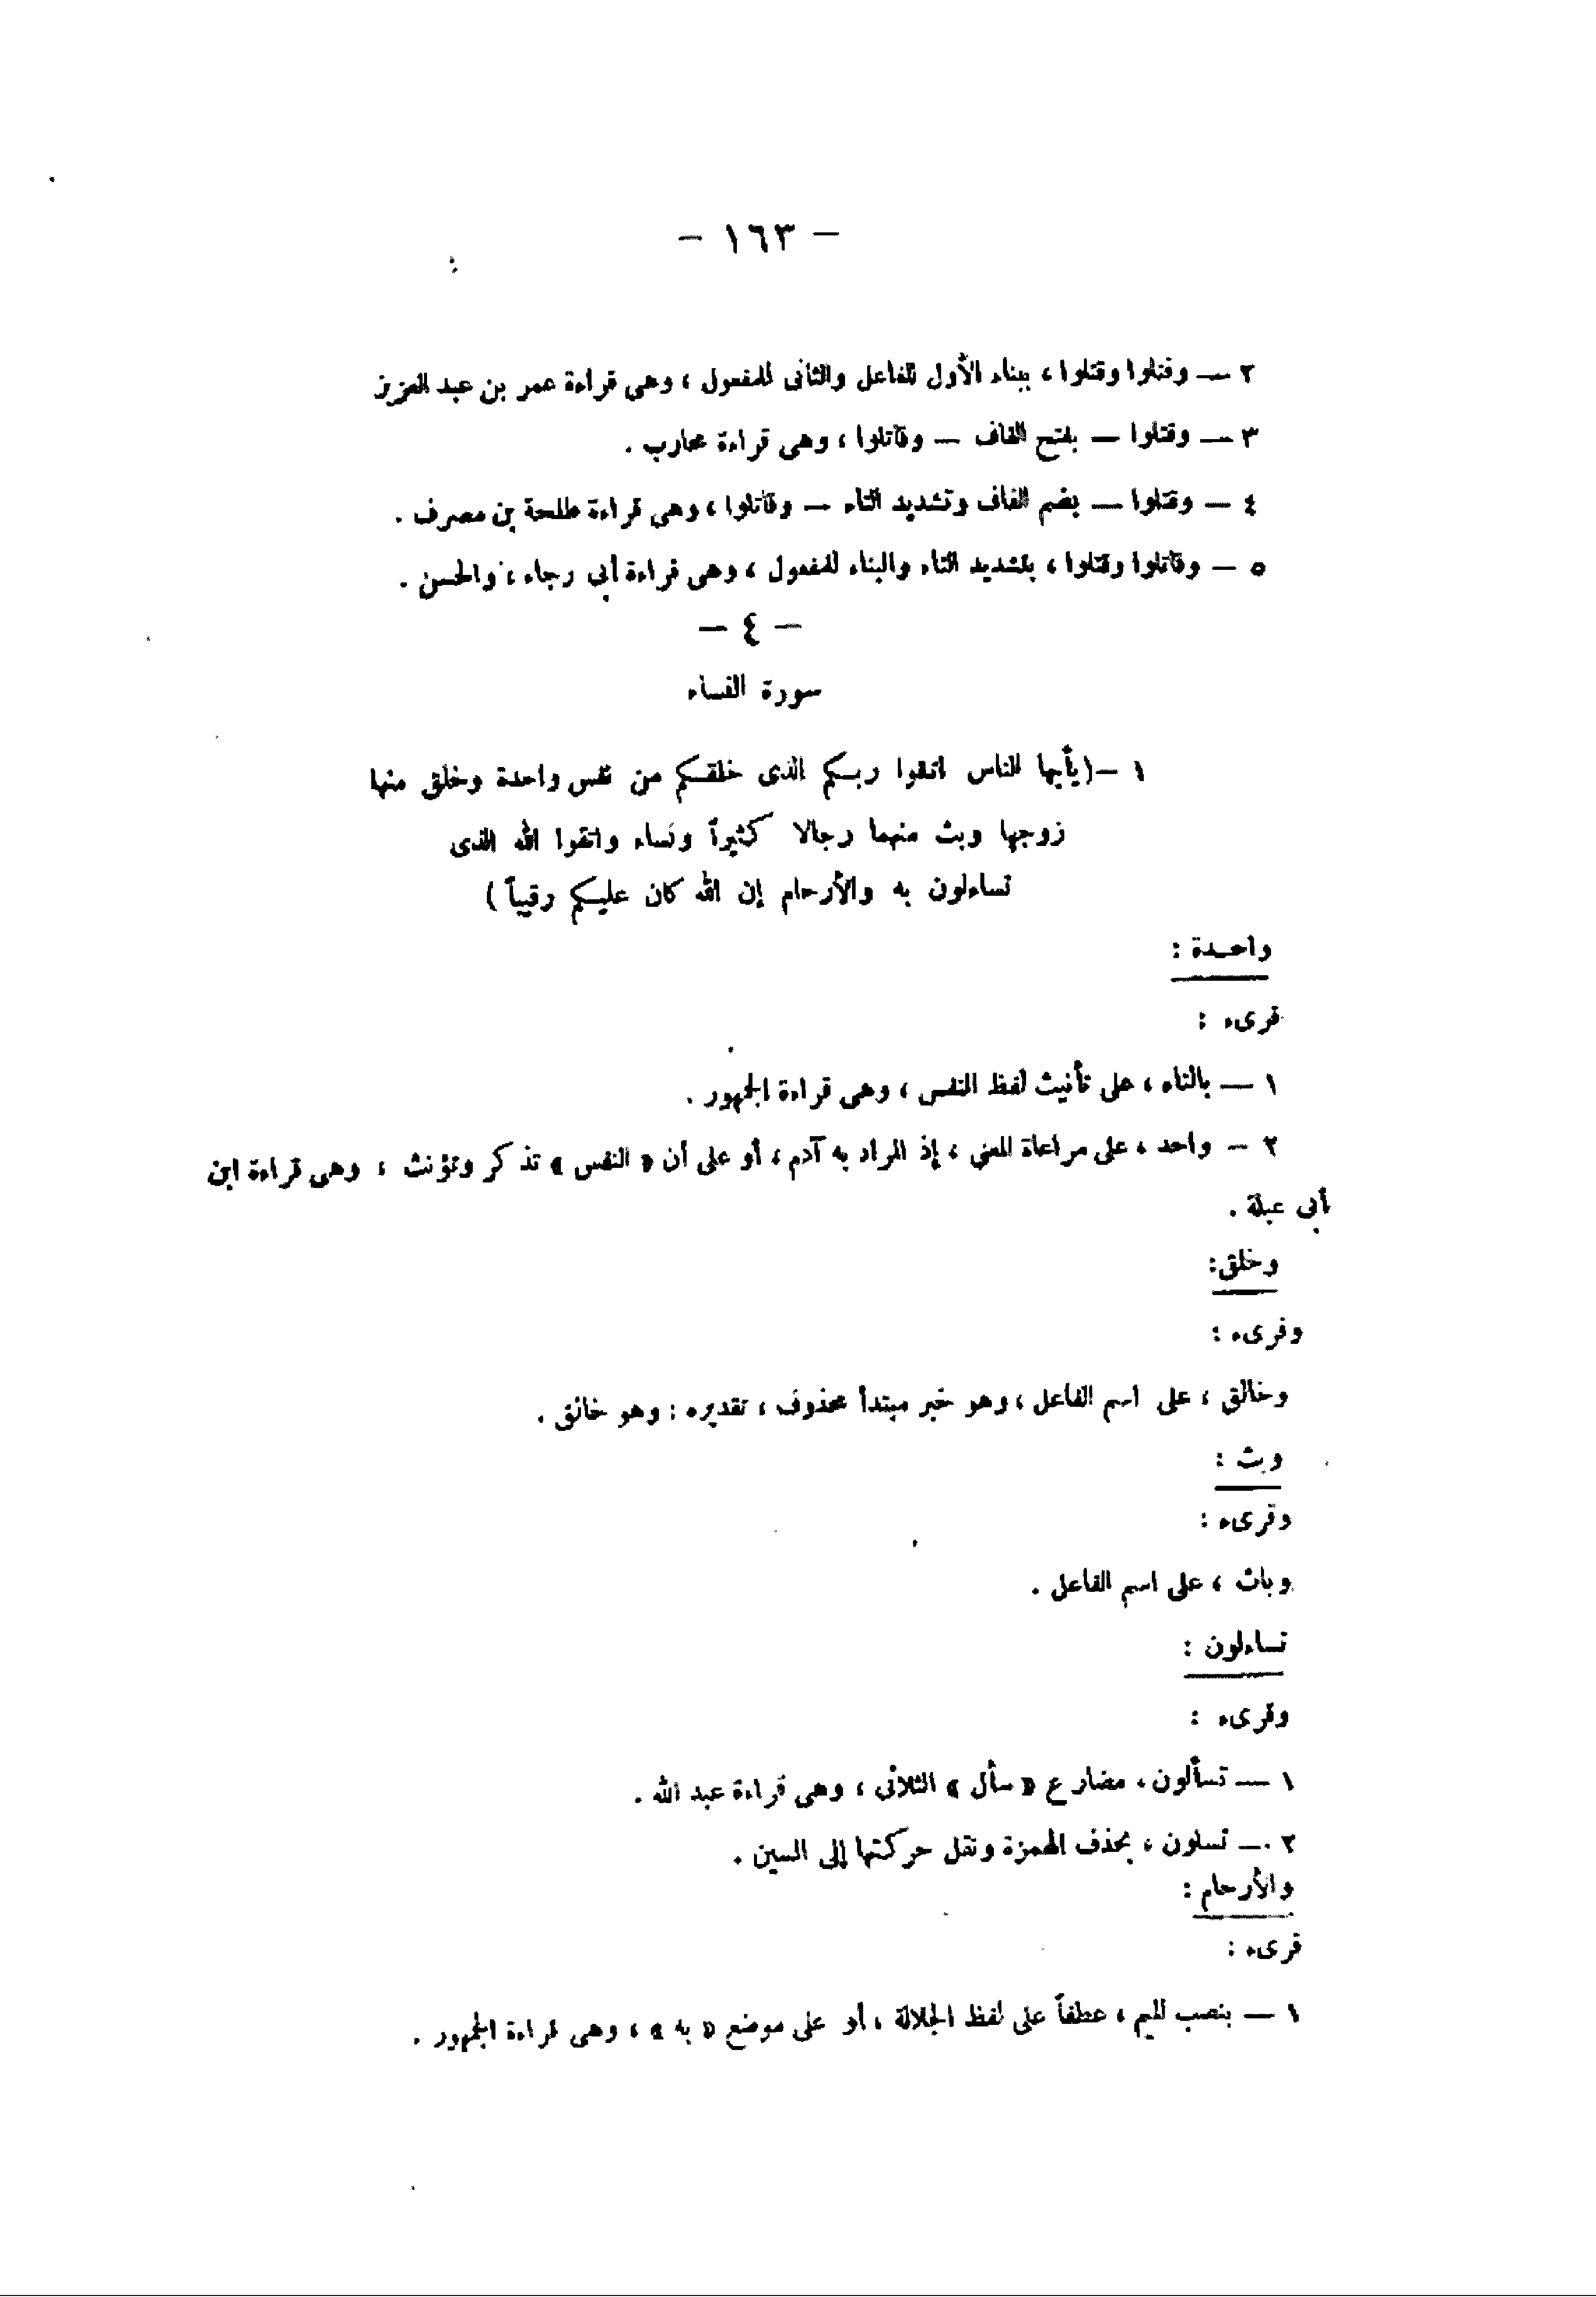 — ١٦٣ —
٢ — وقتلوا وقتلوا ، ببناء الأول للفاعل والثانى للمفعول ، وهى قراءة عمر بن عبد العزيز
٣ — وقتلوا — بفتح القاف — وقاتلوا ، وهى قراءة محارب .
٤ — وقتلوا — بضم القاف وتشديد التاء — وقاتلوا ، وهى قراءة طلحة بن مصرف .
٥ — وقاتلوا وقتلوا ، بتشديد التاء والبناء للمفعول ، وهى قراءة أبى رجاء ، والحسن .
— ٤ —
سورة النساء
١ —(يأيها الناس اتقوا ربكم الذى خلقكم من نفس واحدة وخلق منها
زوجها وبث منهما رجالا كثيراً ونساء واتقوا الله الذى
تساءلون به والأرحام إن الله كان عليكم رقيباً )
واحدة :
قرىء :
١ — بالتاء ، على تأنيث لفظ النفس ، وهى قراءة الجمهور .
٢ — واحد ، على مراعاة المعنى ، إذ المراد به آدم ، أو على أن « النفس » تذكر وتؤنث ، وهى قراءة ابن
أبى عبلة .
وخلق:
وقرىء :
وخالق ، على اسم الفاعل ، وهو خبر مبتدأ محذوف ، تقديره : وهو خالق .
وبث :
وقرىء :
وباث ، على اسم الفاعل .
تساءلون :
وقرىء :
١ — تسألون ، مضارع « سأل » الثلاثى ، وهى قراءة عبد الله .
٢ — تسلون ، بحذف الهمزة ونقل حركتها إلى السين .
والأرحام :
قرىء :
١ — بنصب الميم ، عطفاً على لفظ الجلالة ، أو على موضع « به » ، وهى قراءة الجمهور .